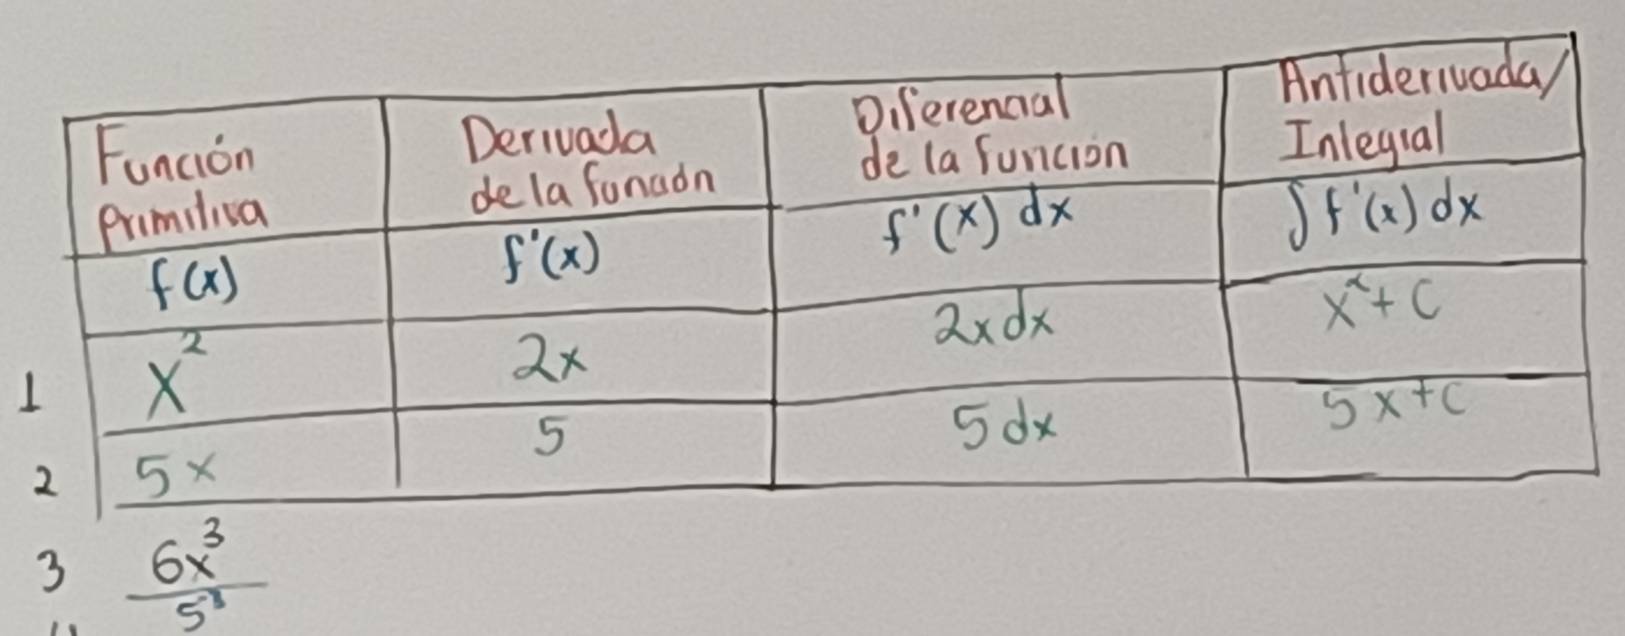 Función
primitiva
Derivada
de la función
Diferencial
de la función
Antiderivada/
Integral
f(x)
f'(x)
f'(x) dx
∫ f'(x) dx
1
x²
2x
2xdx
x² + C
2
5x
5
5 dx
5x+C
3
6x³